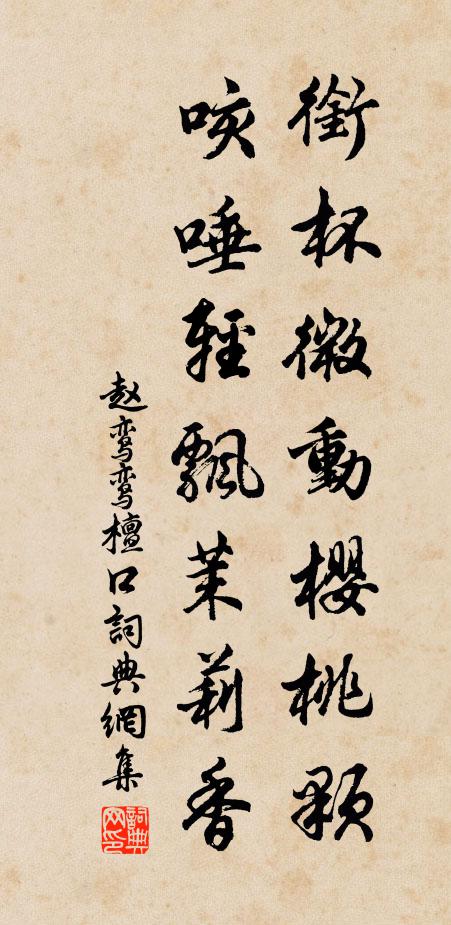 銜杯微動櫻桃顆
咳唾輕飄茉莉香
赵鸾鸾檀口詞典網集
詞典网印